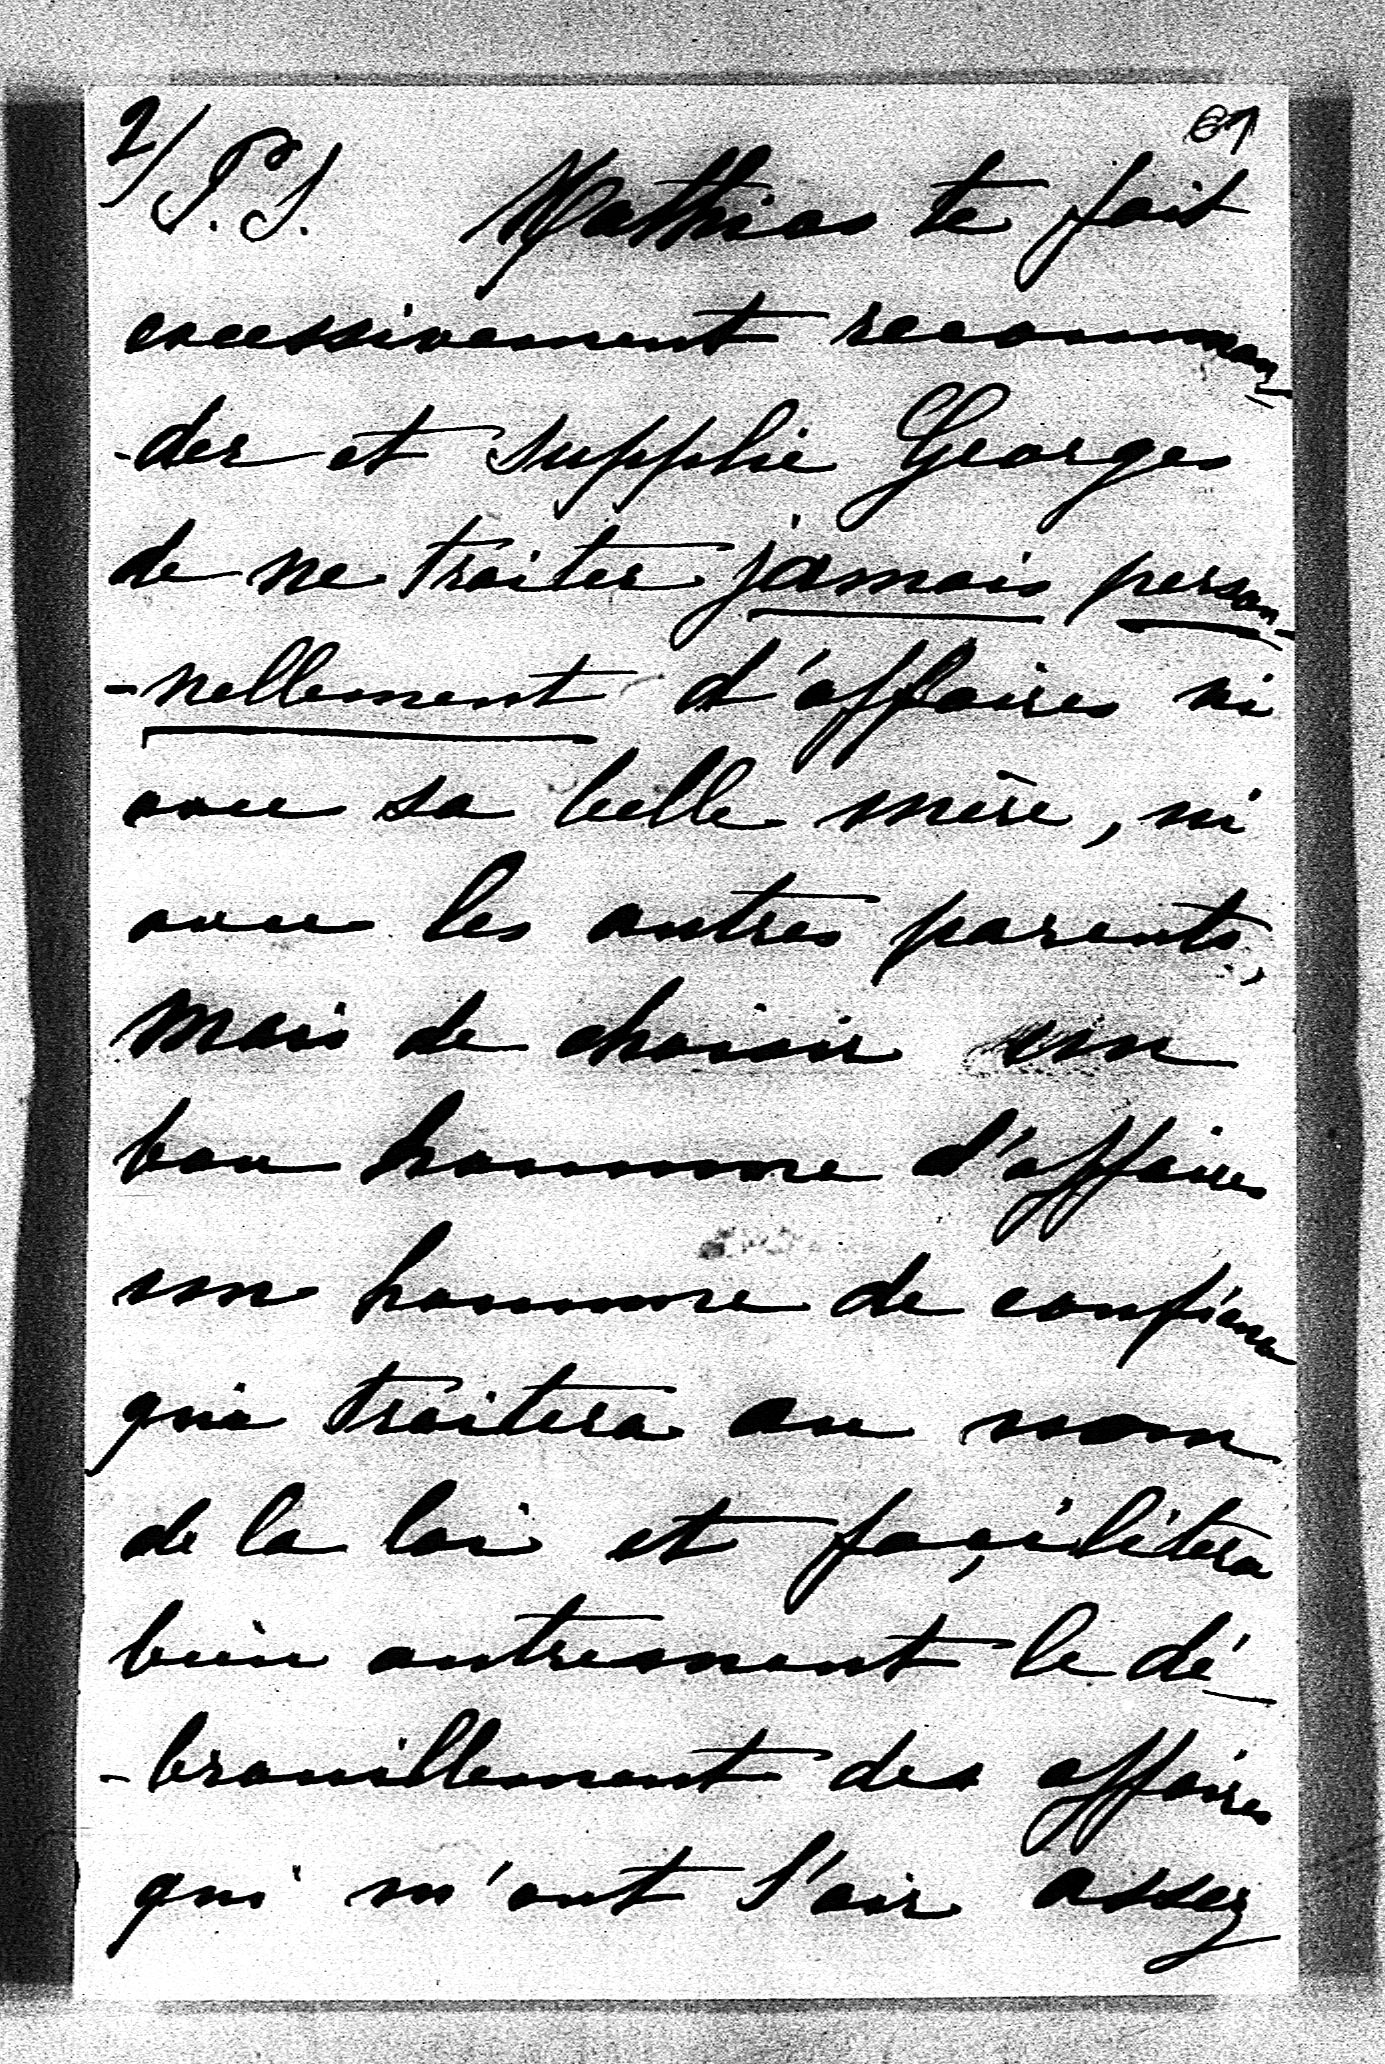 2/ P.S. Mathias te fait
excessivement recomman-
-der et supplie Georges
de ne traiter jamais person-
-nellement d'affaires ni
avec sa belle mère, ni
avec les autres parents,
mais de choisir un
bon homme d'affaires
un homme de confiance
qui traitera au nom
de la loi et façilitera
bien autrement le dé-
-brouillement des affaires
qui m'ont l'air assez